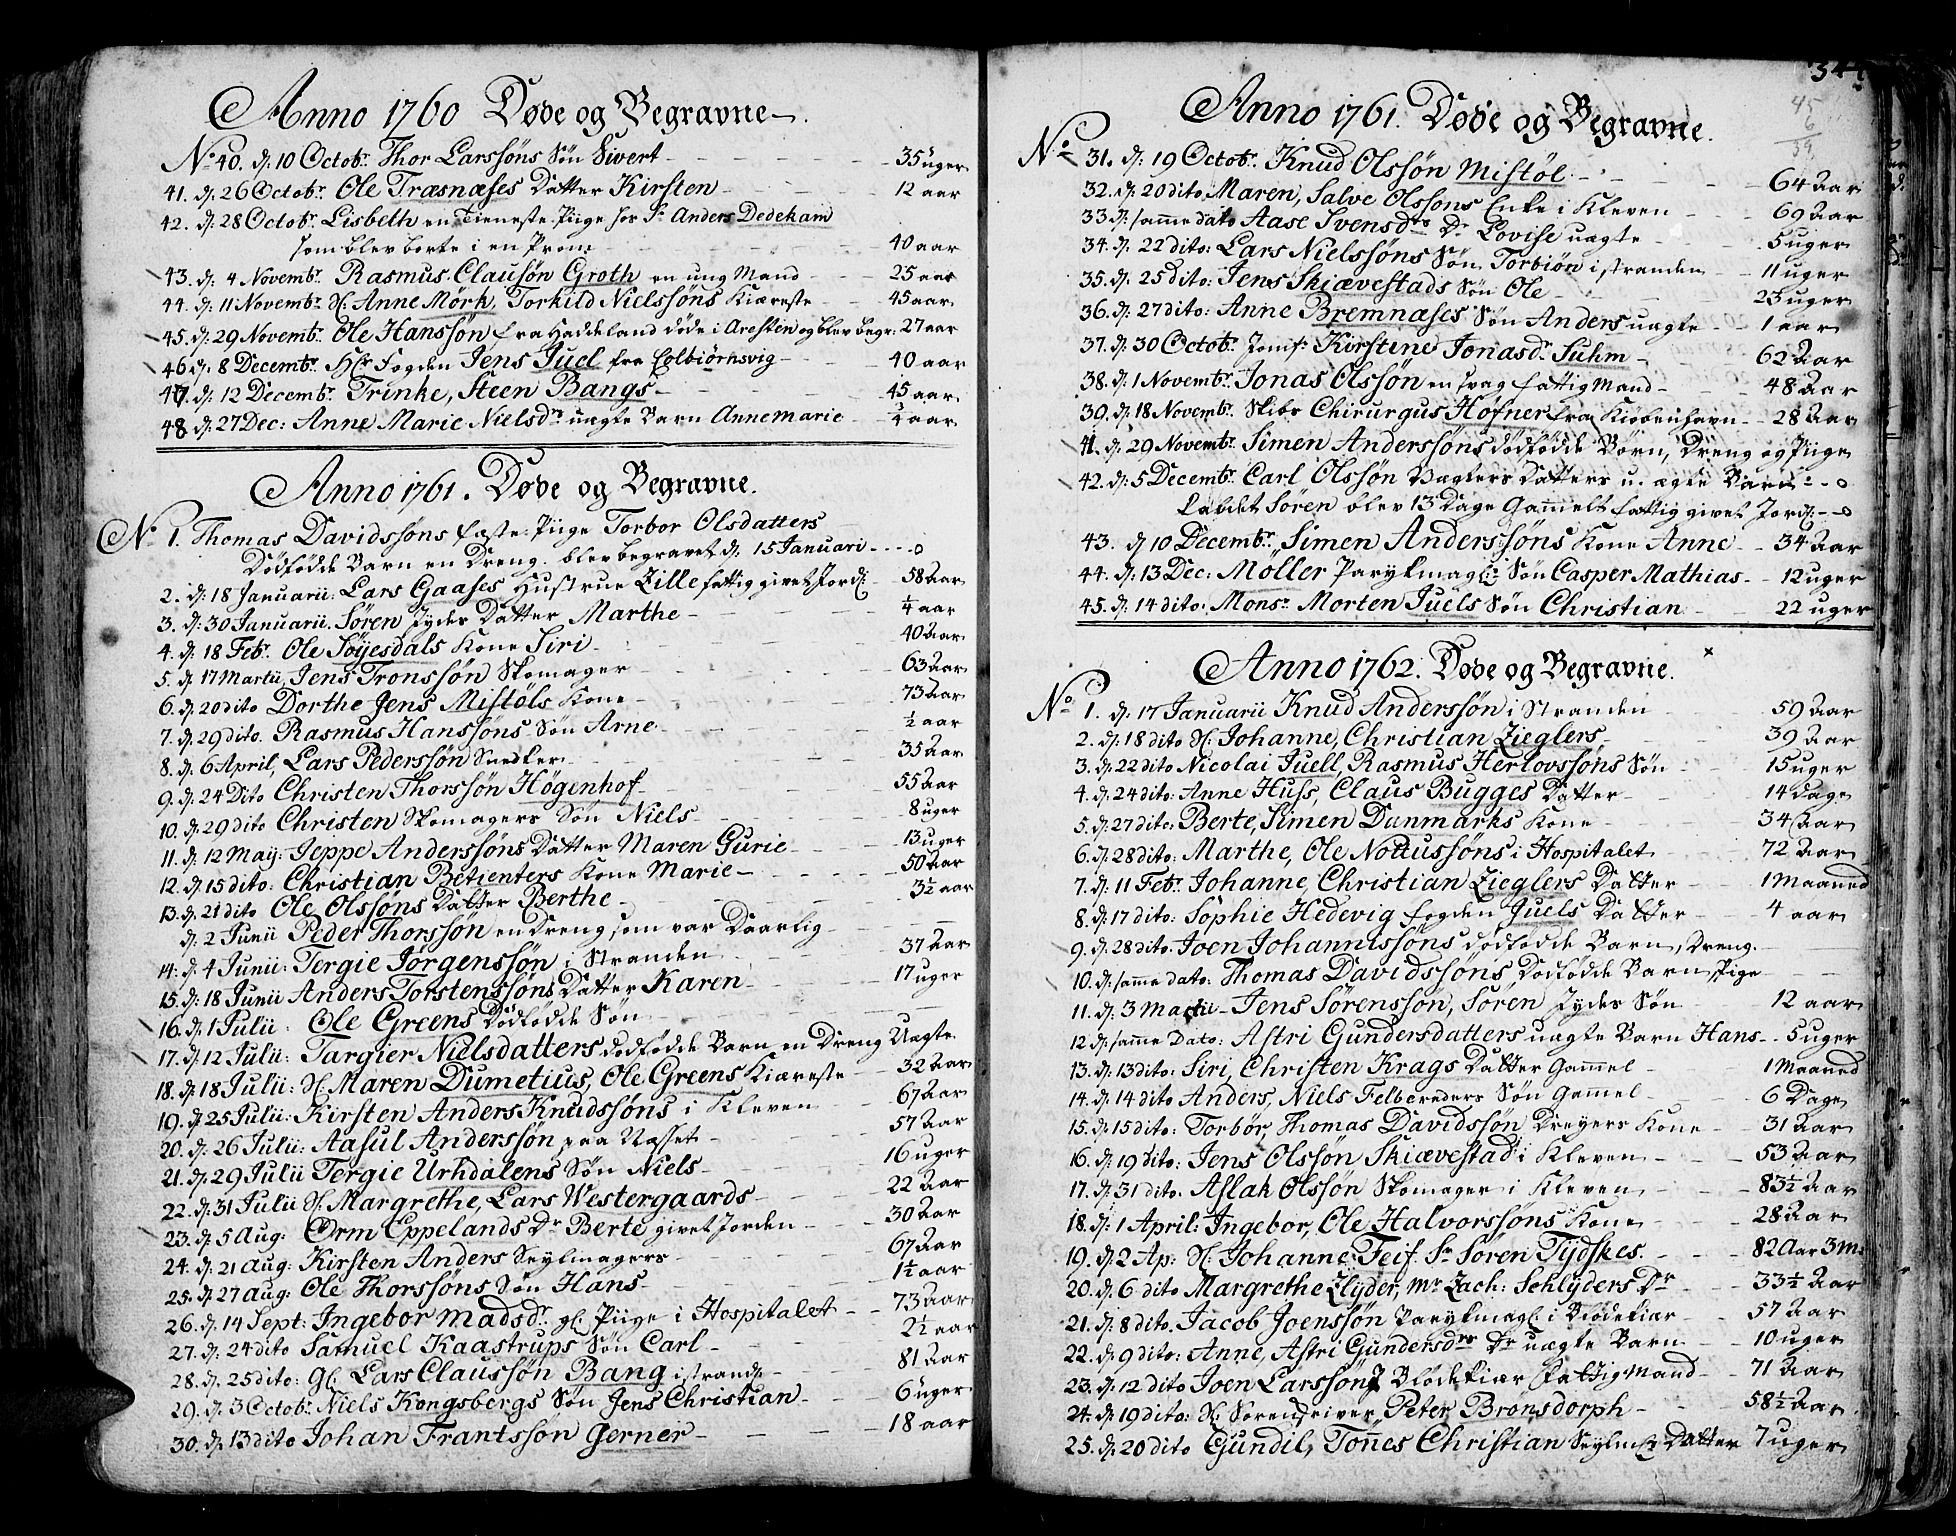 Anno 1760 Døde og Begravne
No 40. d: 10 Octobr. Thor Larssøns Søn Sivert 35 uger
41. d: 26 Octobr Ole Træsnæses Datter Kirsten 12 aar
42. d: 28 Octobr Lisbeth en Tieneste Piige hos Sr Anders Dedekam
som blev borte i en Prom 40 aar
43. d: 4 Novembr Rasmus Clausøn Groth en ung Mand 25 aar
44. d: 11 Novembr Sl. Anne Mörk, Torkild Nielssøns Kiæreste 45 aar
45. d: 29 Novembr Ole Hanssøn fra Haddeland døde i Aresten og blev begr: 27 aar
46 d: 8 Decembr. Hr Fogden Jens Juel fra Colbiørnsvig 40 aar
47. d: 12 Decembr. Trinke, Steen Bangs 45 aar
48 d: 27 Dec: Anne Marie Nielsdr uægte Barn Annemarie ¾ aar
Anno 1761. Døde og Begravne.
No 1. Thomas Davidssøns fæste Piige Torbor Olsdatters
Dødfødde Barn en Dreng blev begravet d: 15 Januari o
2. d: 18 Januarii: Lars Gaases Hustrue Zille fattig givet Jord 58 Aar
3. d: 30 Januarii. Søren Jydes Datter Marthe ¼ aar
4. d: 18 Febr. Ole Søyesdals Kone Siri 40 Aar
5. d: 17 Martii, Jens Tronssøn Skomager 63 Aar
6. d: 20 dito Dorthe Jens Mistöls Kone 73 Aar
7. d: 29 dito. Rasmus Hanssøns Søn Arne ½ aar
8. d: 6 April, Lars Pederssøn Snedker 35 Aar
9. d: 24 Dito Christen Thorssøn Högenhof 55 Aar
10. d: 29 dito Christen Skomagers Søn Niels 8 uger
11. d: 12 Maij. Jeppe Anderssøns Datter Maren Gurie 13 uger
12. d: 15 dito: Christian Betienters Kone Marie 50 Aar
13. d: 21 dito Ole Olssøns Datter Berthe 3½ aar
d: 2 Junii Peder Thorssøn en Dreng, som var Daarlig
14: d: 4 Junii: Tergie Jorgenssøn i Stranden 37 Aar
15. d: 18 Junii Anders Torstenssøns Datter Karen 17 uger
16. d: 1 Julii: Ole Greens Dödfødde Søn
17. d: 12 Julii: Targier Nielsdatters dødfødde Barn en Dreng Uægte
18. d: 18 Julii: Sl. Maren Dumetius, Ole Greens Kiæreste 32 Aar
19. d: 25 Julii: Kirsten Anders Knudssøns i Kleven 67 Aar
20. d: 26 Julii: Aasul Anderssøn paa Næsset 57 Aar
21. d: 29 Julii Tergie Urhdalens Søn Niels 16 uger
22. d: 31 Julii Sl. Margrethe, Lars Westergaards 22 Aar
23. d: 5 Aug: Orm Eppelands Dr Berte givet Jorden 30 Aar
24. d: 21 Aug: Kirsten Anders Seylmagers 67 Aar
25. d: 27 Aug: Ole Thorssøns Søn Hans 1½ aar
26. d: 14 Sept: Ingebor Madsdr. gl. Piige i Hospitalet 73 Aar
27. d: 24 dito Samuel Kaastrups Søn Carl 2½ aar
28. d: 25 dito: gl. Lars Claussøn Bang i strand 81 Aar
29. d: 3 Octobr Niels Kongsbergs Søn Jens Christian 6 uger
30. d: 13 dito Johan Frantssøn Gerner 18 aar
Anno 1761. Døde og Begravne.
45
6
39
No 31. d: 19 Octobr. Knud Olssøn Mistöl 64 Aar
32. d: 20 dito. Maren, Salve Olssøns Enke i Kleven 69 Aar
33 d: samme dato Aase Svensdrs Dr Lovise uægte 5 uger
34. d: 22 dito: Lars Nielssøns Søn Torbiørn i stranden 11 uger
35. d: 25 dito: Jens Skiævestads Søn Ole 23 uger
36. d: 27 dito: Anne Bremnæses Søn Anders uægte 1 aar
37. d: 30 Octobr. Jomfr Kirstine Jonasdr Suhm 62 Aar
38. d: 1 Novembr. Jonas Olssøn en svag fattig Mand 48 Aar
39. d: 18 Novembr. Skibs Chirurgus Höfner fra Kiøbenhavn 28 Aar
41. d: 29 Novembr. Simen Anderssøns dødfødde Börn, Dreng og Piige
42. d: 5 Decembr. Carl Olssøn Vægters Datters u. ægte Barn o
Labdet Søren blev 13 Dage Gammelt fattig givet Jord o
43. d 10 Decembr. Simen Anderssøns Kone Anne 34 Aar
44. d: 13 Dec: Møller Parykmag: Søn Casper Mathias 12 uger
45. d: 14 dito: Monsr. Morten Juels Søn Christian 22 uger
Anno 1762. Døde og Begravne.
No 1. d: 17 Januarii Knud Anderssøn i Stranden 59 Aar
2. d: 18 dito Sl. Johanne, Christian Zieglers 39 Aar
3. d: 22 dito Nicolai Juell, Rasmus Herlovssøns Søn 15 uger
4. d: 24 dito: Anne Huss, Claus Bugges Datter 14 dage
5. d: 27 dito: Berte, Simen Danmarks Kone 34 Aar
6. d: 28 dito: Marthe, Ole Nottussøns i Hospitalet 72 Aar
7. d: 11 Febr. Johanne, Christian Zieglers Datter 1 Maaned
8. d: 17 dito: Sophie Hedevig Fogden Juels Datter 4 aar
9. d: 28 dito: Joen Johannissøns dødfødde Barn, Dreng.
10. d: samme dato: Thomas Davidssøns Dødfødde Barn, Pige
11. d: 3 Martii Jens Sörenssøn, Søren Jydes Søn 12 aar
12 d: samme Dato: Astri Gundersdatters uægte Barn Hans 5 uger
13. d: 13 dito: Siri, Christen Krags Datter Gammel 1 Maaned
14. d: 14 dito Anders, Niels Felbereders Søn Gammel 6 Dage
15. d: 15 dito: Torbør, Thomas Davidssøn Dreyers Kone 31 Aar
16. d: 19 dito: Jens Olssøn Skiævestad i Kleven 53 Aar
17. d: 31 dito: Aslak Olssøn Skomager i Kleven 83½ Aar
18. d: 1 April: Ingebor, Ole Halvorssøns Kone 28 Aar
19. d: 2 Ap: Sl. Johanne Feif. Sr Søren Tydskes. 82 Aar 3 m:
20. d: 6 dito Margrethe Zlyder, Mr Zach: Schlyders Dr 33½ Aar
21. d: 8 dito. Jacob Joenssøn Parykmag. i Blødekiær 57 Aar
22. d: 9 dito: Anne, Astri Gundersdrs Dr uægte Barn 10 uger
23. d: 12 dito Joen Larssøn Blödekiær Fattig Mand 71 Aar
24. d: 19 dito: Sl. Sorenskriver Peter Bronsdorph 58½ Aar
25. d: 20 dito Gundil, Tönnes Christian Seylm: Datter 7 uger